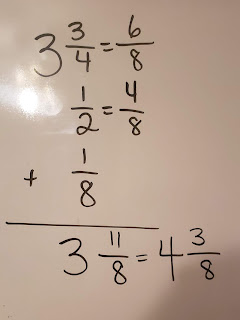 3 3/4 = 6/8
1/2 = 4/8
+ 1/8
3 11/8 = 4 3/8